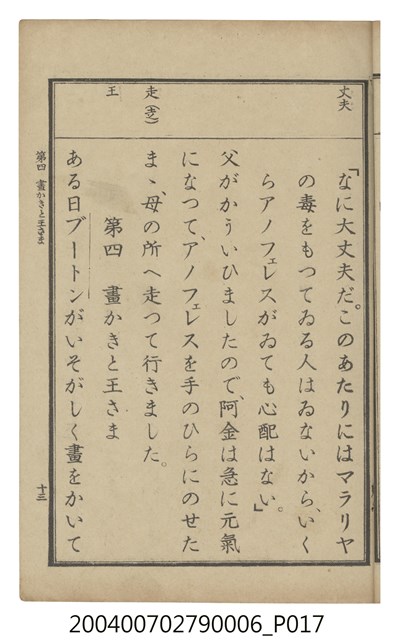 丈夫
走(𧺆)
王
「なに大丈夫だ。このあたりにはマラリヤ
の毒をもつてゐる人はゐないから、いく
らアノフェレスがゐても心配はない。」
父がかういひましたので、阿金は急に元氣
になつて、アノフェレスを手のひらにのせた
まゝ、母の所へ走つて行きました。
第四　畫かきと王さま
ある日ブートンがいそがしく畫をかいて
第四　畫かきと王さま
十三
200400702790006_P017